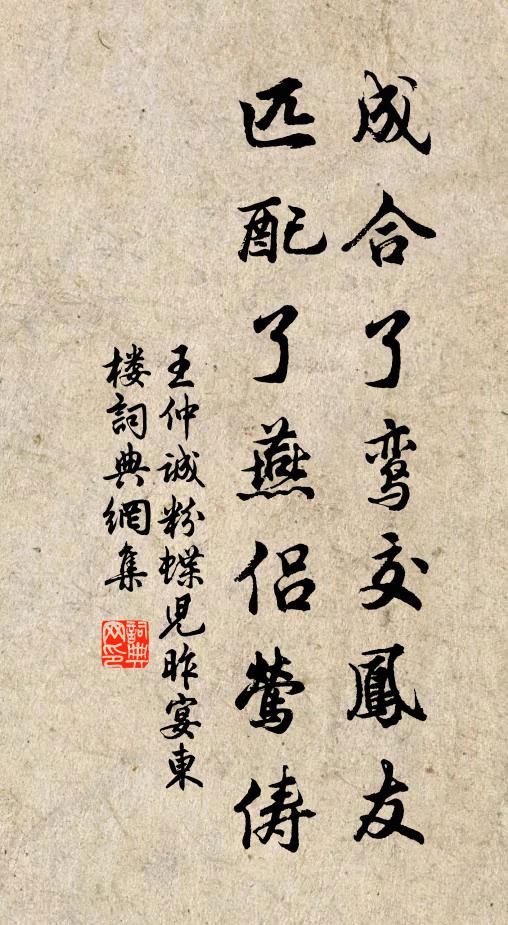 成合了鸾交鳳友
匹配了燕侣莺俦
王仲诚粉蝶児昨宴東
楼詞典網集
詞典网印